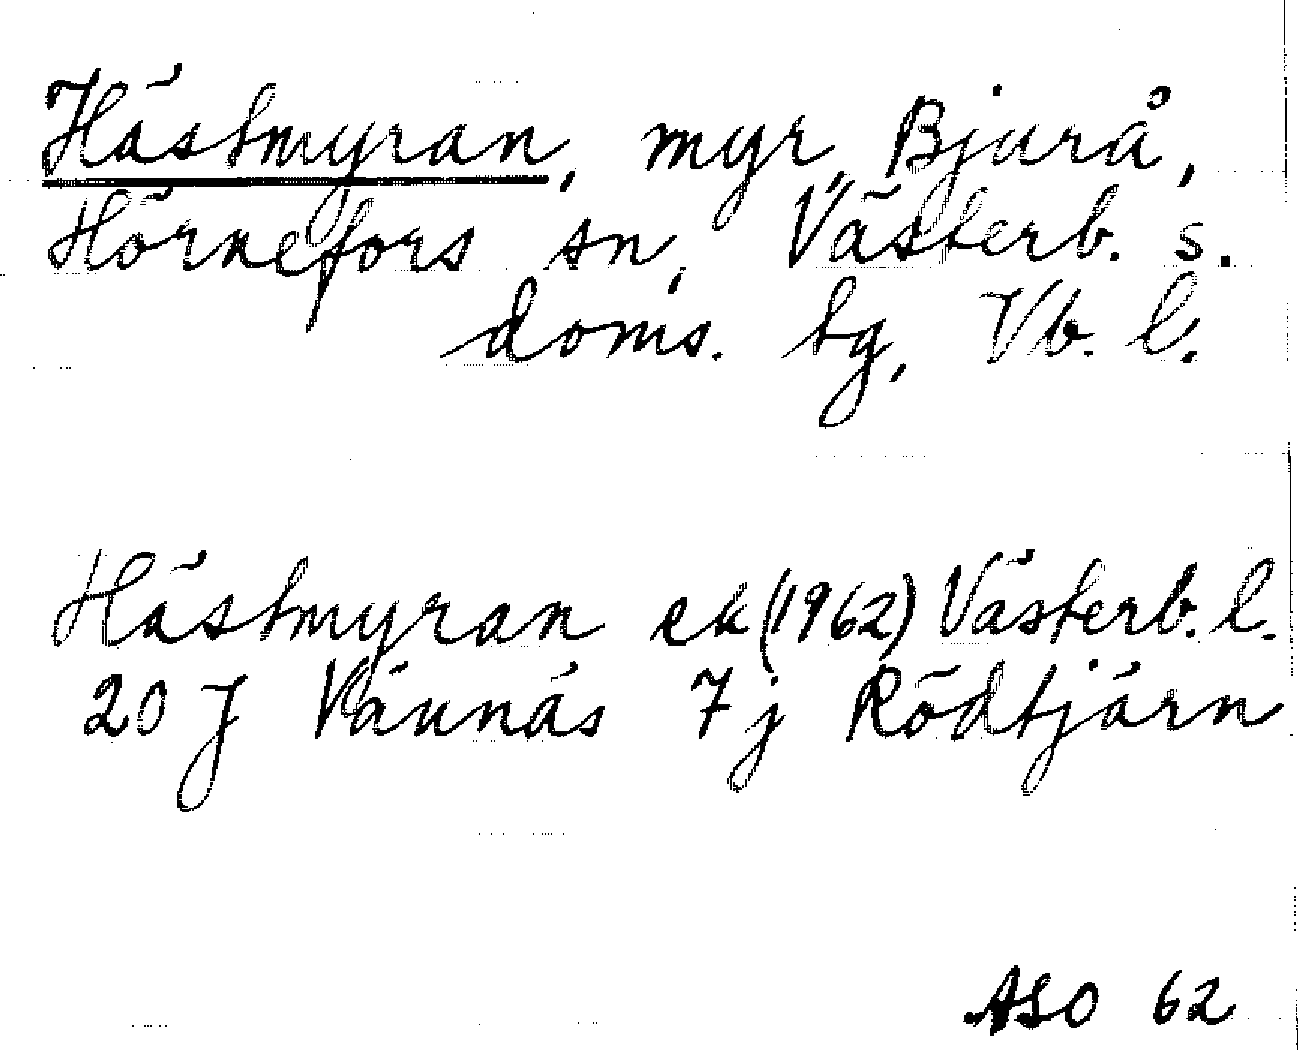 Hästmyran, myr, Bjurå,
Hörnefors sn, Västerb. s.
doms. tg, Vb. l.
Hästmyran ek (1962) Västerb. l.
20 J Vännäs 7 j Rödtjärn
ASO 62